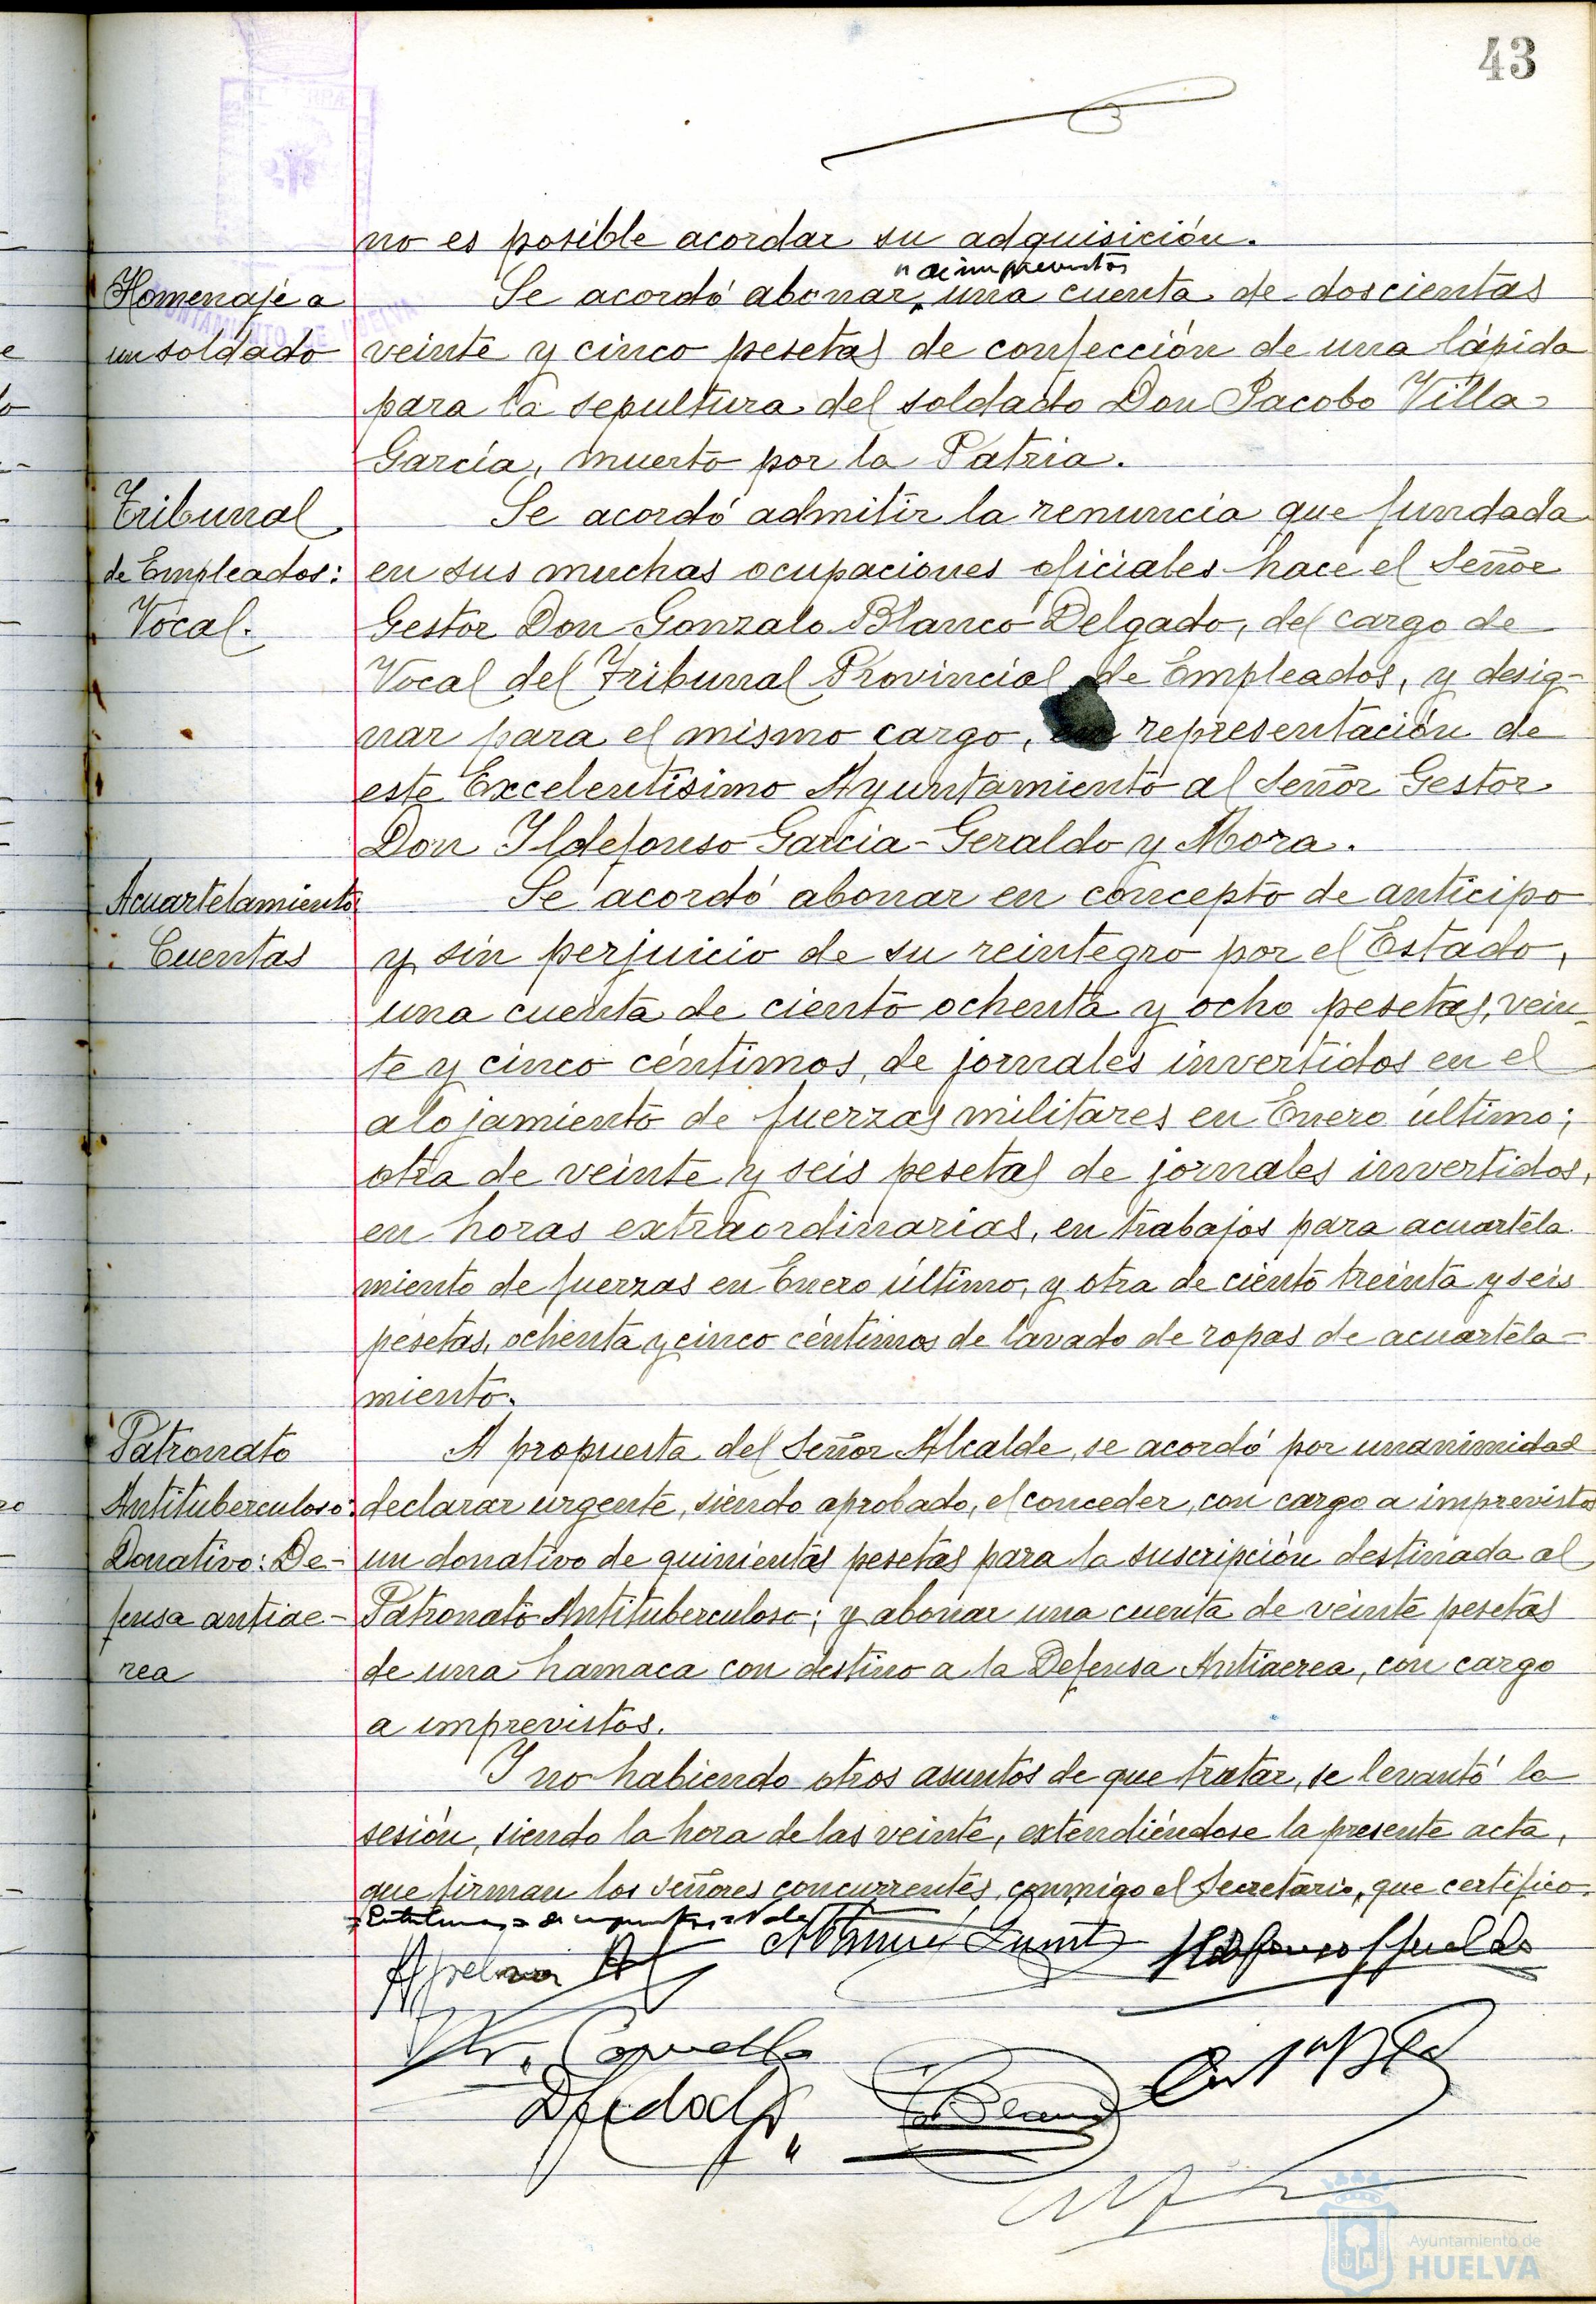 43
no es posible acordar su adquisición.
Homenaje a
un soldado
de imprevistos
Se acordó abonar, una cuenta de doscientas
veinte y cinco pesetas de confección de una lápida
para la sepultura del soldado Don Jacobo Villa
García, muerto por la Patria.
Tribunal
de Empleados:
Vocal.
Se acordó admitir la renuncia que fundada
en sus muchas ocupaciones oficiales hace el Señor
Gestor Don Gonzalo Blanco Delgado, del cargo de
Vocal del Tribunal Provincial de Empleados, y desig-
nar para el mismo cargo, en representación de
este Excelentísimo Ayuntamiento al Señor Gestor
Don Ildefonso García-Geraldo y Mora.
Acuartelamiento
: Cuentas
Se acordó abonar en concepto de anticipo
y sin perjuicio de su reintegro por el Estado,
una cuenta de ciento ochenta y ocho pesetas, vein-
te y cinco céntimos, de jornales invertidos en el
alojamiento de fuerzas militares en Enero último;
otra de veinte y seis pesetas de jornales invertidos,
en horas extraordinarias, en trabajos para acuartela
miento de fuerzas en Enero último, y otra de ciento treinta y seis
pesetas, ochenta y cinco céntimos de lavado de ropas de acuartela-
miento.
Patronato
Antituberculoso:
Donativo: De-
fensa antiae-
rea
A propuesta del Señor Alcalde, se acordó por unanimidad
declarar urgente, siendo aprobado, el conceder, con cargo a imprevistos
un donativo de quinientas pesetas para la suscripción destinada al
Patronato Antituberculoso; y abonar una cuenta de veinte pesetas
de una hamaca con destino a la Defensa Antiaerea, con cargo
a imprevistos.
Y no habiendo otros asuntos de que tratar, se levantó la
sesión, siendo la hora de las veinte, extendiéndose la presente acta,
que firman los señores concurrentes, conmigo el Secretario, que certifico.
Ayuntamiento de
HUELVA